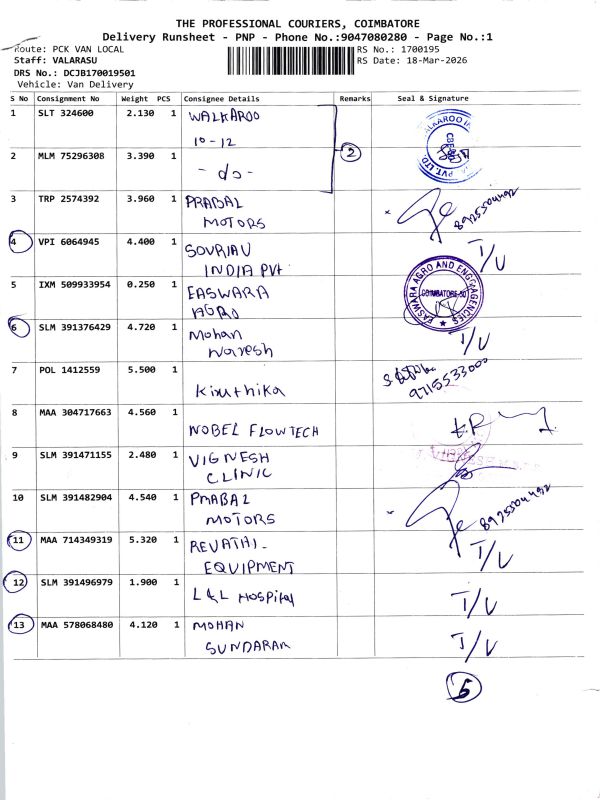 THE PROFESSIONAL COURIERS, COIMBATORE
Delivery Runsheet - PNP - Phone No.:9047080280 - Page No.:1
Route: PCK VAN LOCAL
RS No.: 1700195
Staff: VALARASU
RS Date: 18-Mar-2026
DRS No.: DCJB170019501
Vehicle: Van Delivery
S No Consignment No Weight PCS Consignee Details Remarks Seal & Signature
1 SLT 324600 2.130 1 WALKAROO
10-12
2 MLM 75296308 3.390 1 - do - 2
3 TRP 2574392 3.960 1 PRABAL
MOTORS
4 VPI 6064945 4.400 1 SOURIAU
INDIA PVt I/V
5 IXM 509933954 0.250 1 EASWARA
AGRO
EASWARA AGRO AND ENGG AGENCIES
COIMBATORE
6 SLM 391376429 4.720 1 Mohan
Naresh I/V
7 POL 1412559 5.500 1
Kiruthika 9715533000
8 MAA 304717663 4.560 1
NOBEL FLOWTECH
9 SLM 391471155 2.480 1 VIGNESH
CLINIC
10 SLM 391482904 4.540 1 PRABAL
MOTORS
11 MAA 714349319 5.320 1 REVATHI-
EQUIPMENT I/V
12 SLM 391496979 1.900 1 L&L HOSPital I/V
13 MAA 578068480 4.120 1 MOHAN
SUNDARAR I/V
5